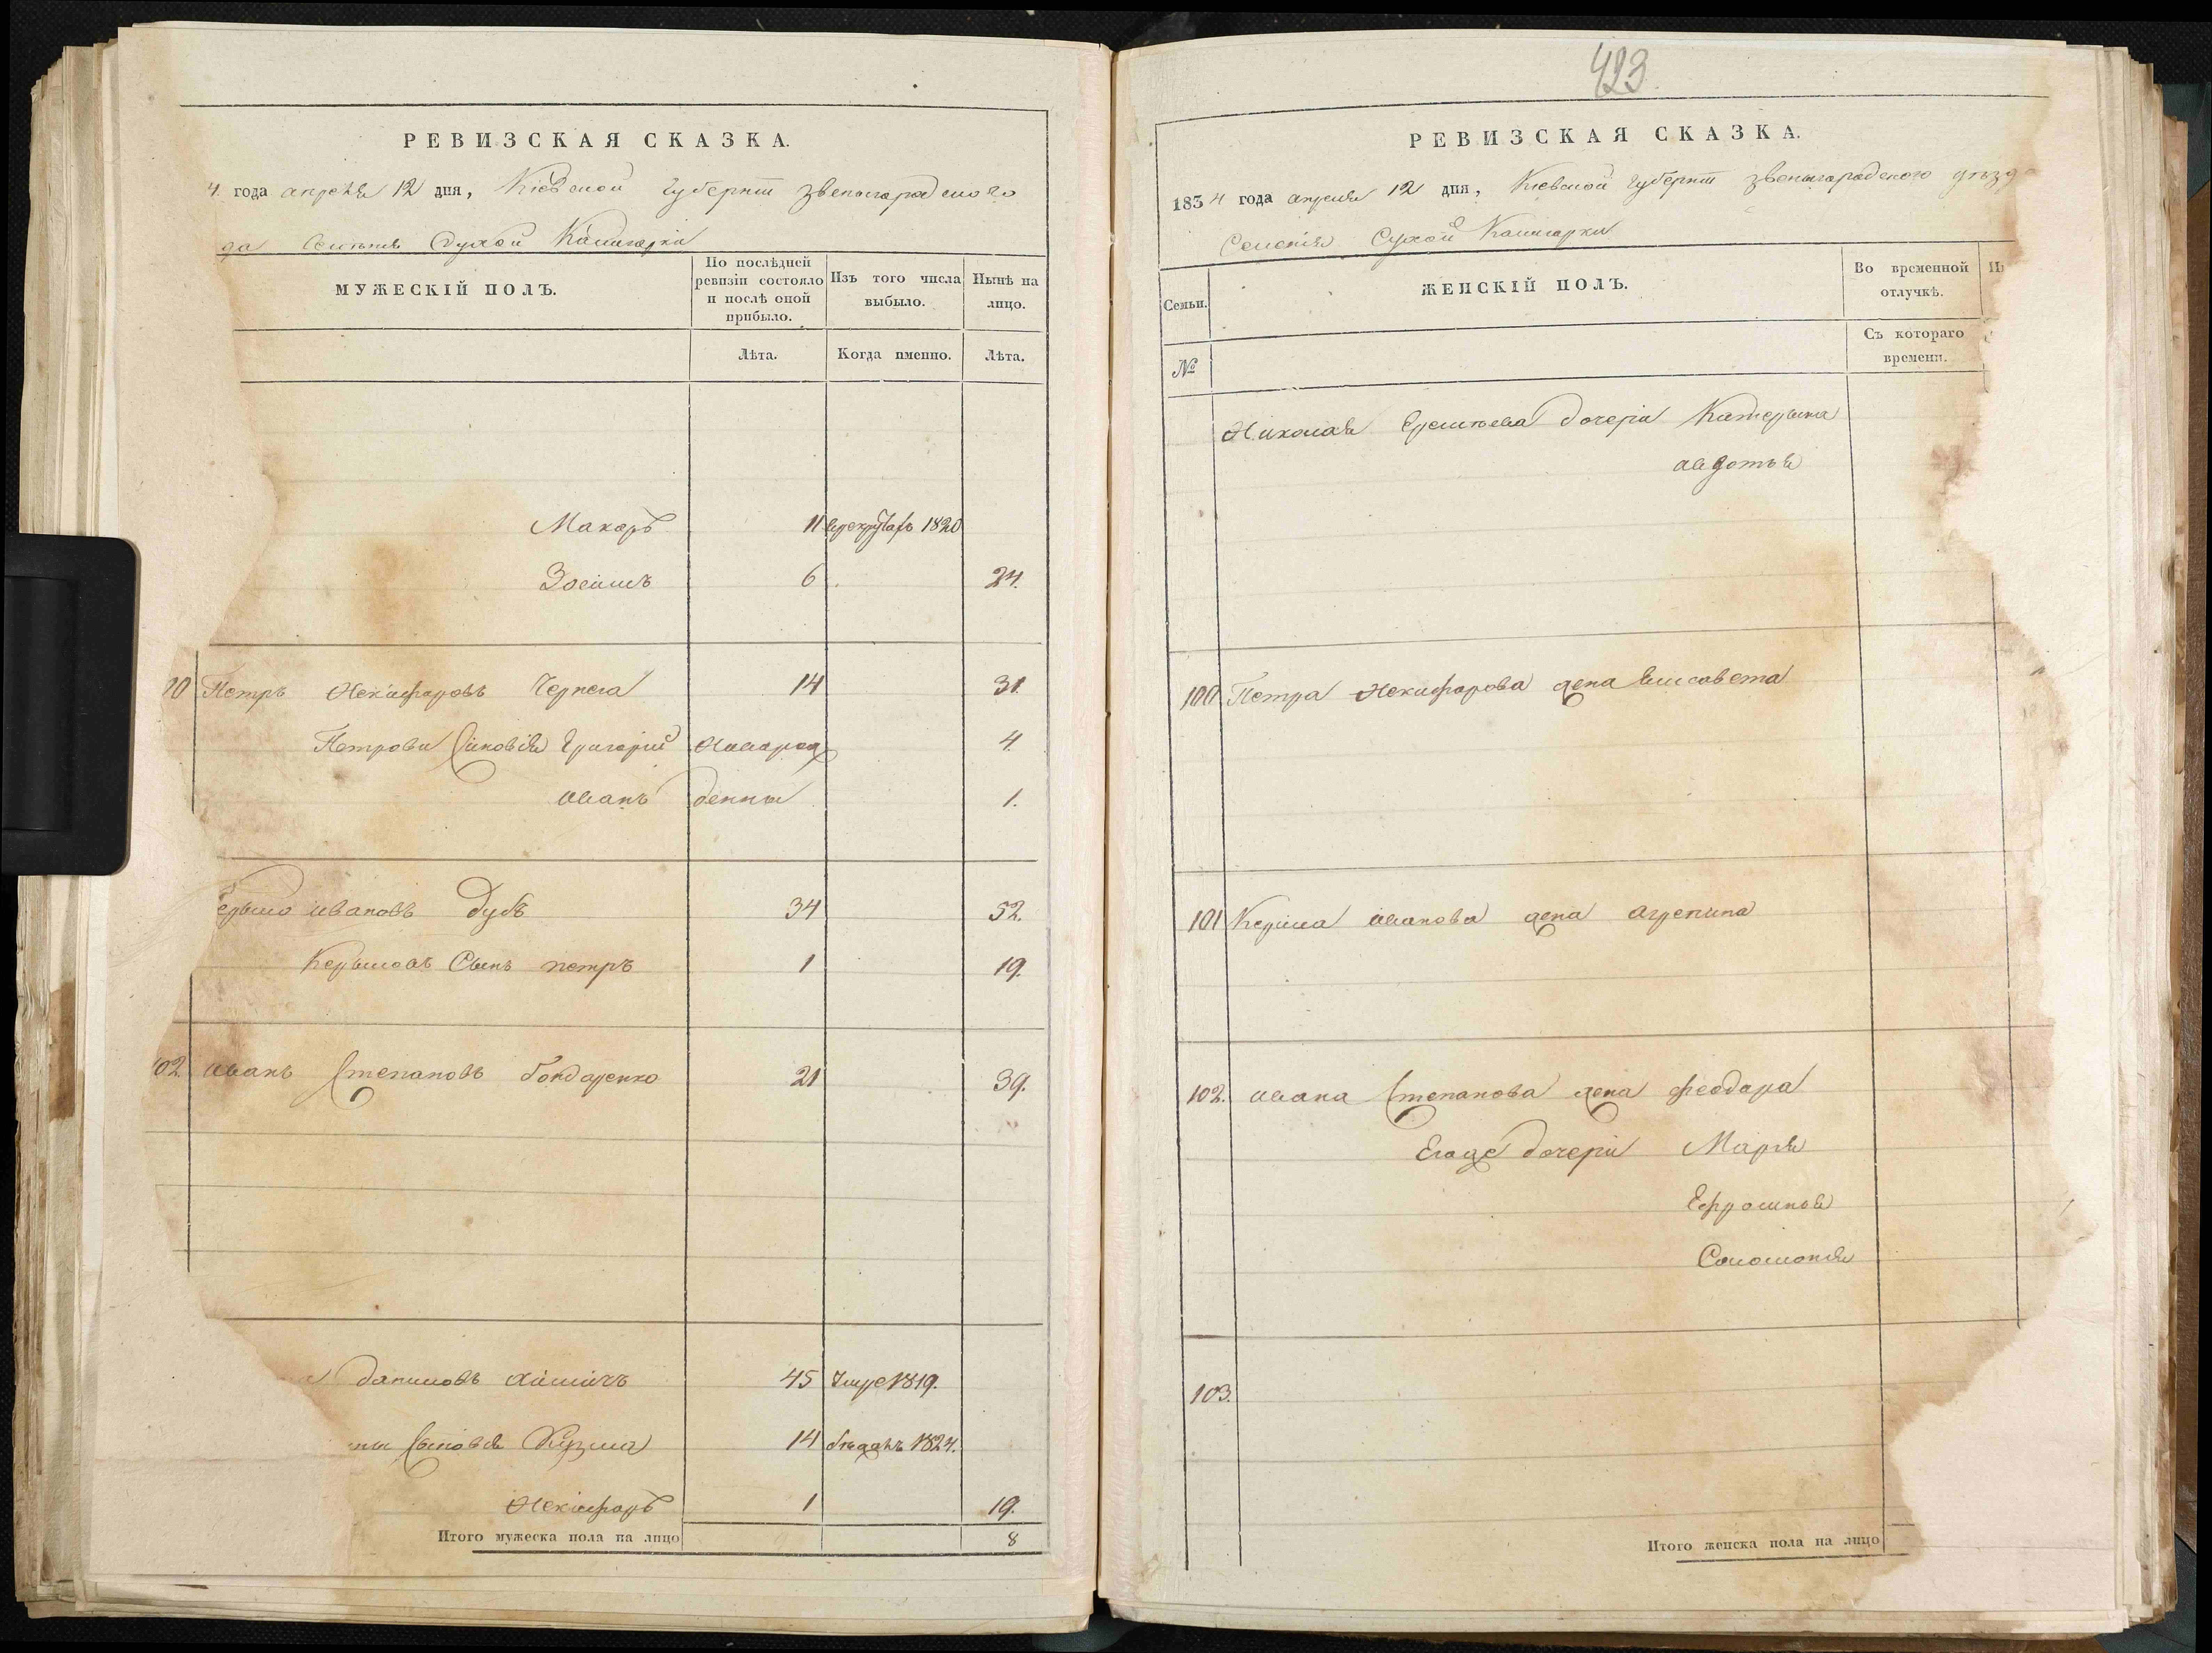 423.
РЕВИЗСКАЯ СКАЗКА.
4 года апреля 12 дня, Кіевской губерніи звенигородского
да Селенія Сухой Калигорки
МУЖЕСКІЙ ПОЛЪ.
По послѣдней ревизіи состояло и послѣ оной прибыло.
Изъ того числа выбыло.
Нынѣ на лицо.
Лѣта.
Когда именно.
Лѣта.
Макаръ 11 врекрутахъ 1820
Зосимъ 6 24.
00 Петръ Некифоровъ Чернега 14 31.
Петрови Синовія Григорій новорож 4
иванъ денны 1.
ивановъ Дубъ 34 52.
Сынъ петръ 1 19.
102 иванъ Степановъ бондаренко 21 39.
даниловъ 45 Умре 1819.
ны Синовія Кузма 14 бѣжалъ 1824.
Некифоръ 1 19.
Итого мужеска пола на лицо 8
РЕВИЗСКАЯ СКАЗКА.
1834 года апреля 12 дня, Кіевской губерніи звенигородского уѣзда
Селенія Сухой Калигорки
Семьи.
ЖЕНСКІЙ ПОЛЪ.
Во временной отлучкѣ.
№
Съ котораго времени.
Николая дочери Катерина
авдотья
100 Петра Некифорова жена Елисавета
101 иванова жена агрепина
102. ивана Степанова жена феодора
Егоже дочери Марія
Ефросинья
Соломонія
103.
Итого женска пола на лицо